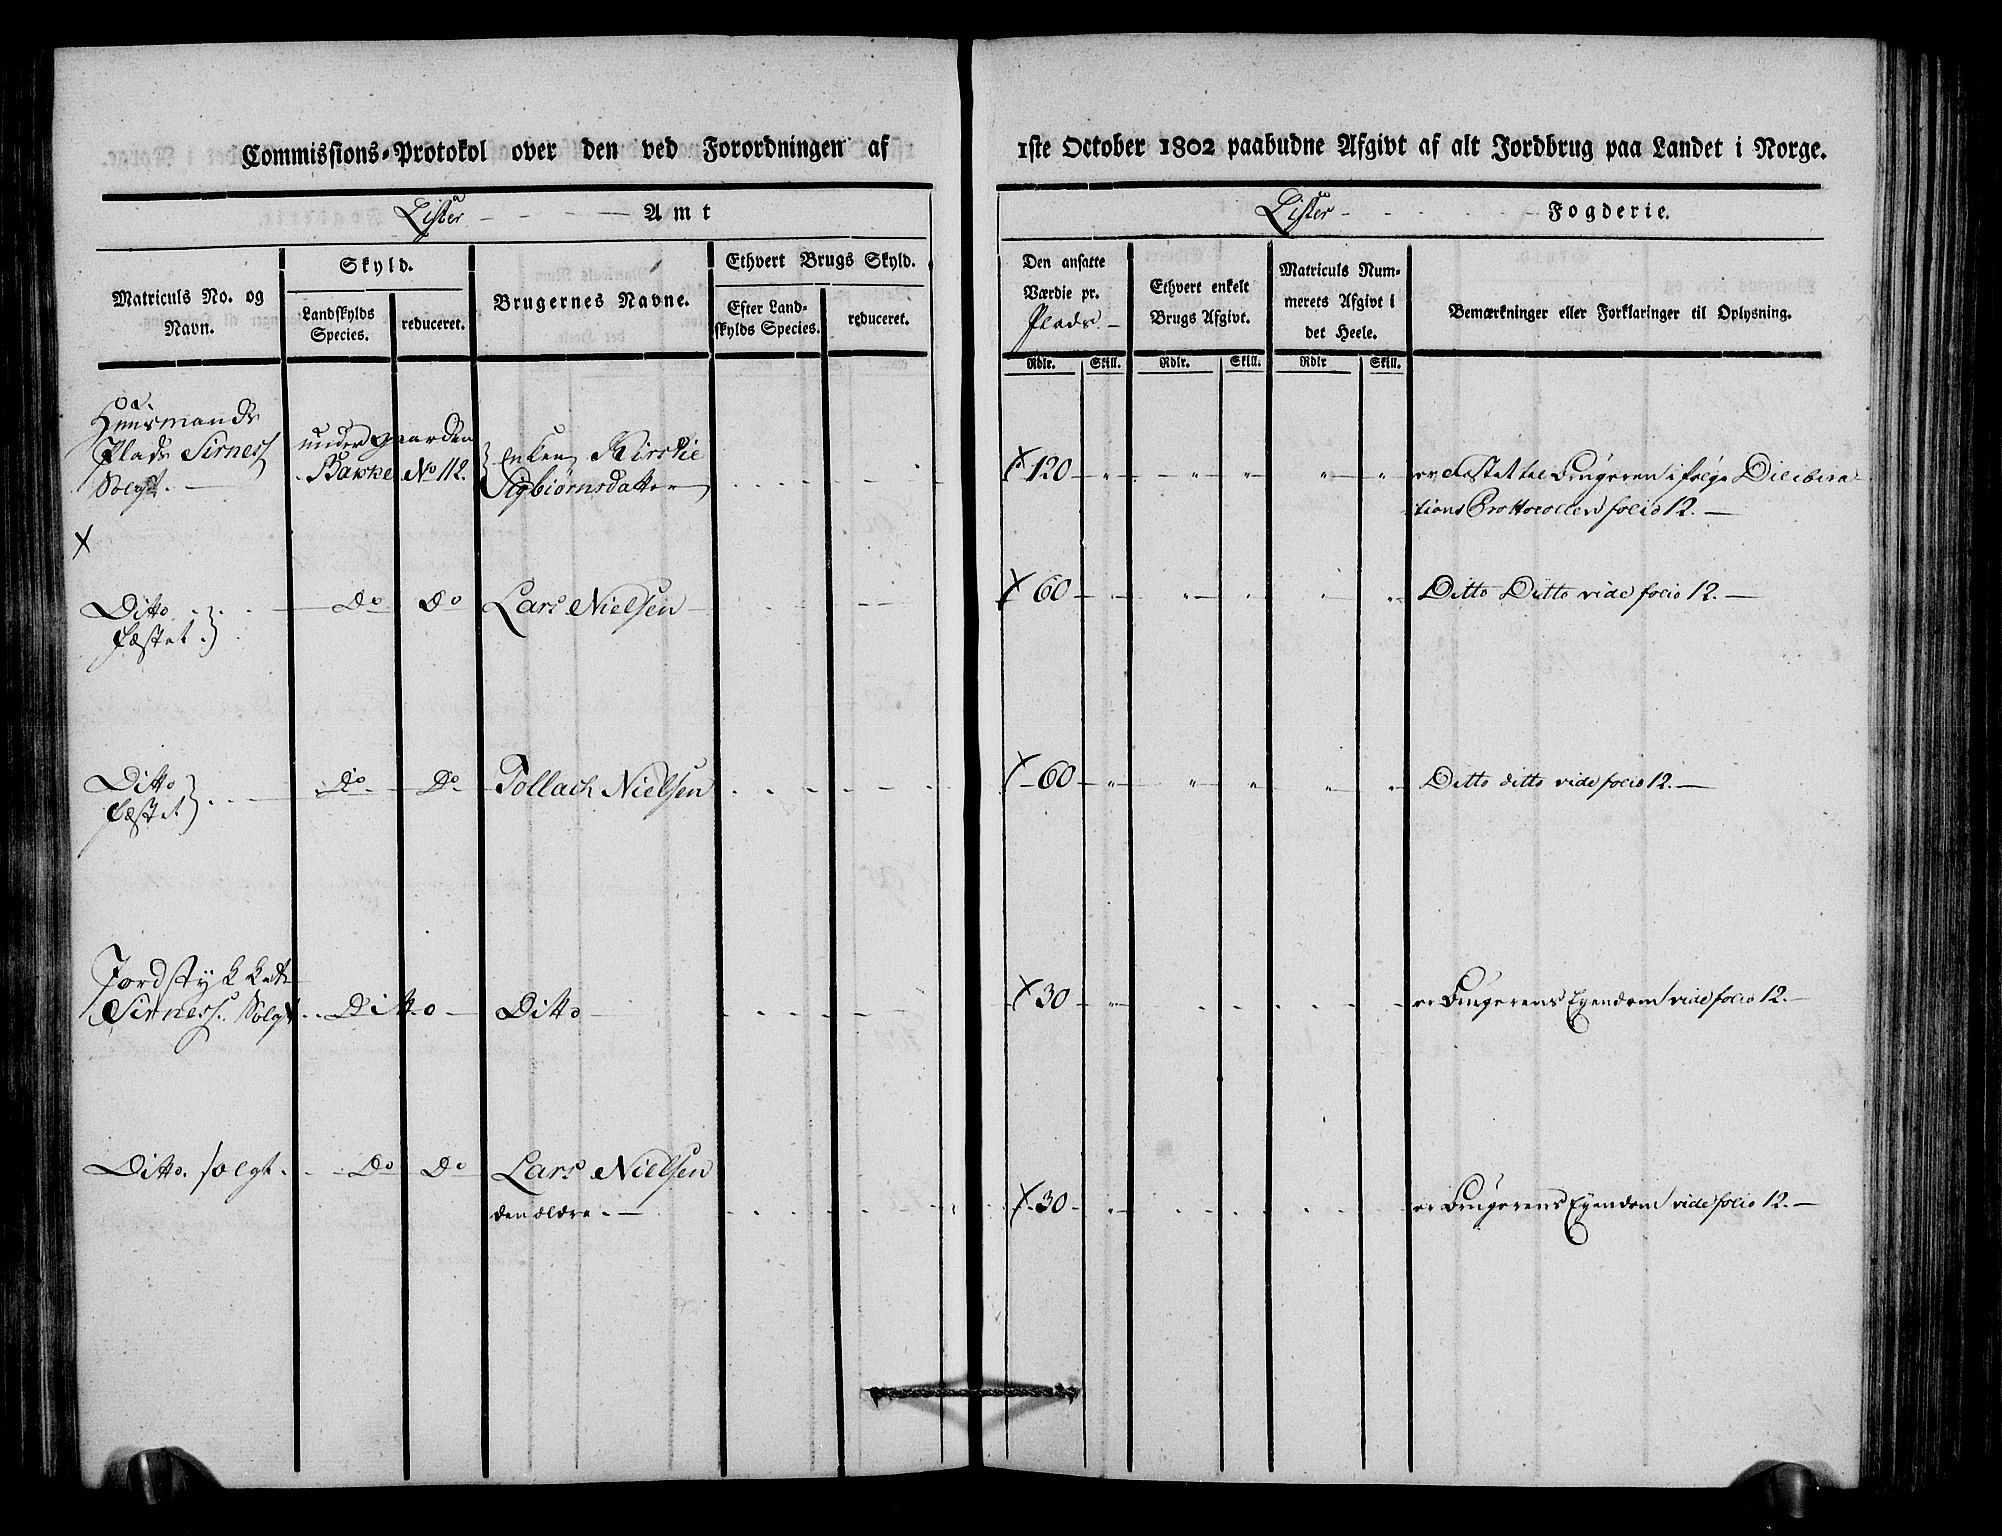 Commissions-Protokol over den ved Forordningen af 1ste October 1802 paabudne Afgivt af alt Jordbrug paa Landet i Norge.
Lister Amt
Lister Fogderie.
Matriculs No. og Navn.
Skyld.
Landskylds Species.
reduceret.
Brugernes Navne.
Ethvert Brugs Skyld.
Efter Landskylds Species.
reduceret.
Den ansatte Værdie pr. Plads
Ethvert enkelt Brugs Afgivt.
Matriculs Nummerets Afgivt i det Heele.
Bemærkninger eller Forklaringer til Oplysning.
Rdlr. Skill. Rdlr. Skill. Rdlr Skill.
Huusmands
Plads Sirness
Solgt.
under gaarden
Bakke No 112.
Enken Kirstie
Sigbiørnsdatter
X 120
er fæstet til Brugeren i følge Dilibera-
tions Prottocollen folio 12.
X
Ditto
fæstet
Do Do
Lars Nielsen
X 60
Ditto Ditto vide folio 12.
Ditto
fæstet
Do Do
Tollach Nielsen
X 60
Ditto ditto vide folio 12.
Jordstykket
Sirness. Solgt
Ditto
Ditto
X 30
er Brugerens Eyendom vide folio 12.
Ditto. solgt.
Do Do
Lars Nielsen
den ældre.
X 30
er Brugerens Eyendom vide folio 12.